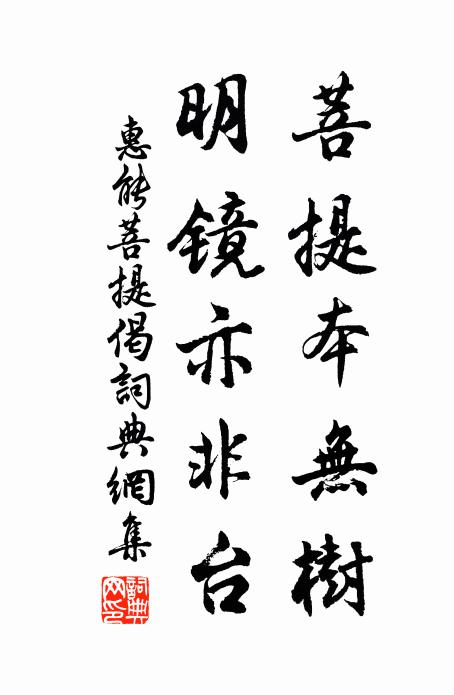 菩提本無樹
明鏡亦非台
惠能菩提偈詞典網集
詞典網印